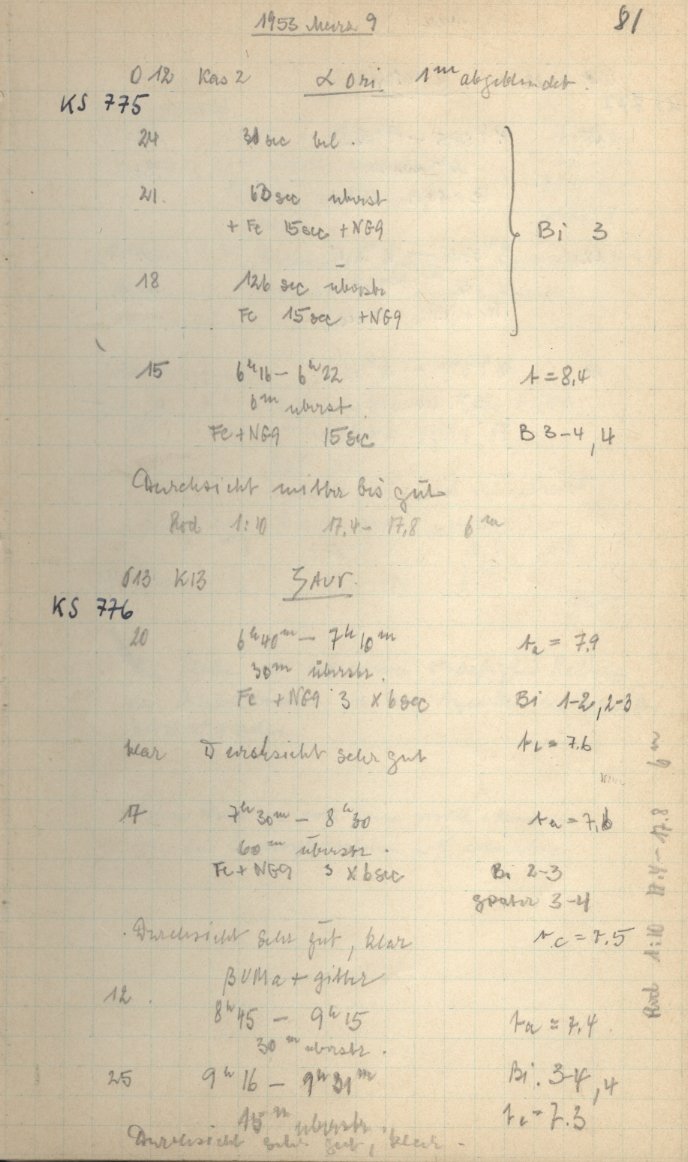 81
1953 März 9
O 12 Kas 2 α Ori 1m abgeblendet.
KS 775
24 30 sec bel.
21. 60 sec überstr
+ Fe 15 sec + NG9
Bi 3
18 126 sec überstr
Fe 15 sec + NG9
15 6h16 – 6h22 t = 8,4
6m überst.
Fe + NG9 15 sec B 3-4, 4
Durchsicht mittel bis gut
Rod 1:10 17,4 – 17,8 6m
O13 K13 ζ Aur.
KS 776
20 6h40m – 7h10m ta = 7,9
30m überstr.
Fe + NG9 3 x 6 sec Bi 1-2, 2-3
klar Durchsicht sehr gut te = 7.6
17 7h30m – 8h30 ta = 7,6
60m überstr.
Fe + NG9 3 x 6 sec Bi 2-3
später 3-4
Durchsicht sehr gut, klar te = 7.5
β UMa + gitter
12.
8h45 – 9h15 ta = 7.4
30m überstr.
25 9h16 – 9h31m Bi. 3-4, 4
15m überstr. te = 7.3
Durchsicht sehr gut, klar.
Rod 1:10 17.4 – 17.8 6m